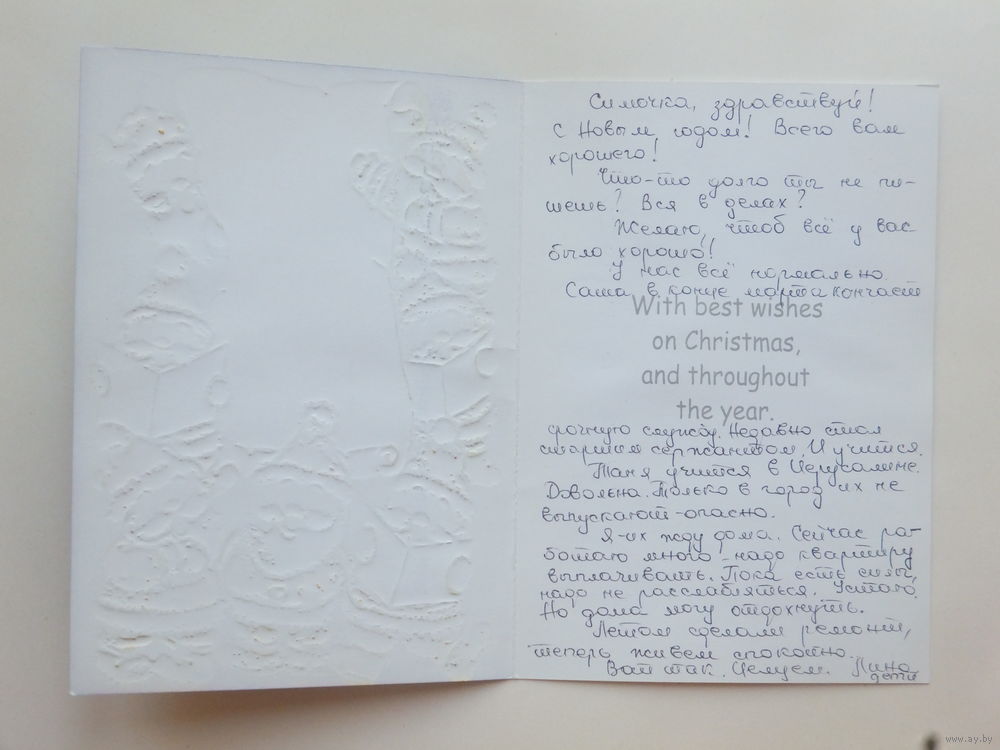 Симочка, здравствуй!
С Новым годом! Всего вам
хорошего!
Что-то долго ты не пи-
шешь? Вся в делах?
Желаю, чтоб всё у вас
было хорошо!
У нас всё нормально
Саша в конце марта кончает
With best wishes
on Christmas,
and throughout
the year.
срочную службу. Недавно стал
старшим сержантом. И учится.
Таня учится в Иерусалиме.
Довольна. Только в город их не
выпускают-опасно.
Я-их жду дома. Сейчас ра-
ботаю много-надо квартиру
выплачивать. Пока есть силы,
надо не расслабляться. Устаю.
Но дома могу отдохнуть.
Летом сделали ремонт,
теперь живем спокойно.
Вот так. Целуем. Лина
дети
www.ay.by